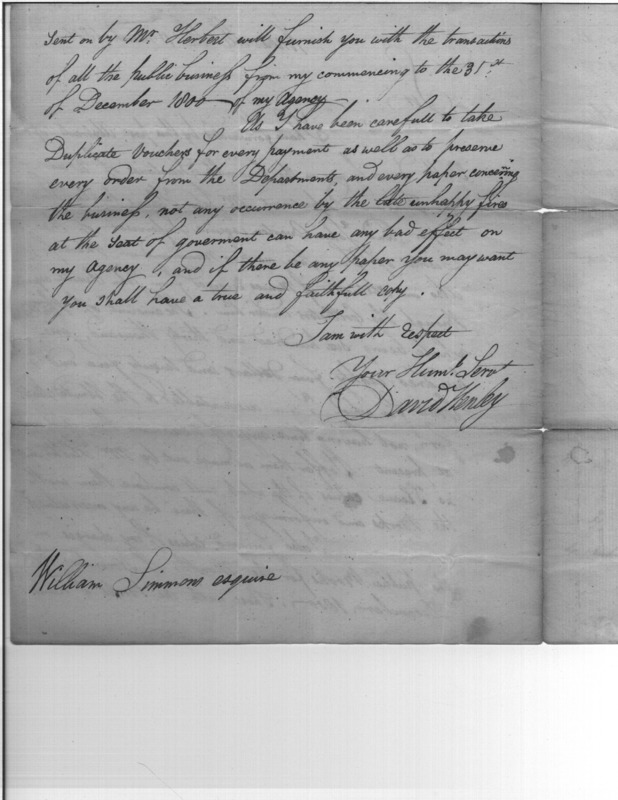 sent on by Mr. Herbert will furnish you with the transactions
of all the public business from my commencing to the 31st.
of December 1800 of my Agency
As I have been carefull to take
Duplicate Vouchers for every payment as well as to preserve
every order from the Departments, and every paper concerning
the business, not any occurrence by the late unhappy fires
at the seat of goverment can have any bad effect on
my Agency, and if there be any paper you may want
you shall have a true and faithfull copy.
I am with respect
Your Huml. Servt
David Henley
William Simmons esquire